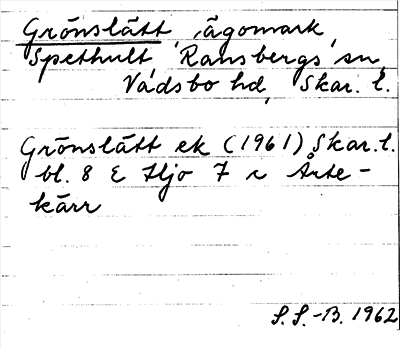 Grönslätt, ägomark,
Spethult, Ransbergs sn,
Vadsbo hd, Skar. l.
Grönslätt ek (1961) Skar. l.
bl. 8 E Hjo 7 r Årte-
kärr
S. S.-B. 1962